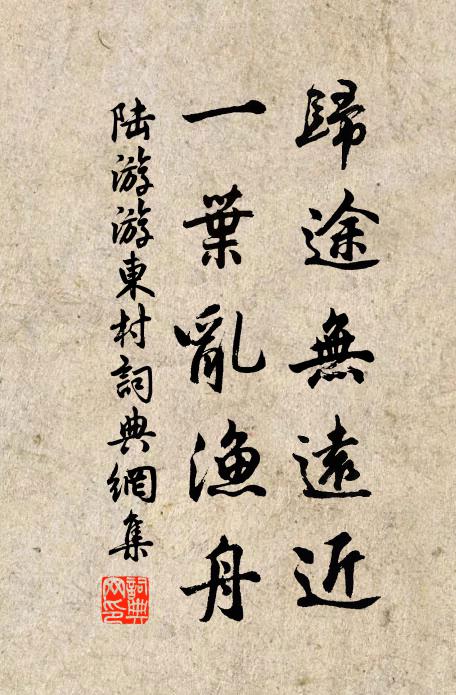 歸途無遠近
一葉亂漁舟
陸游游東村詞典網集
詞典网印